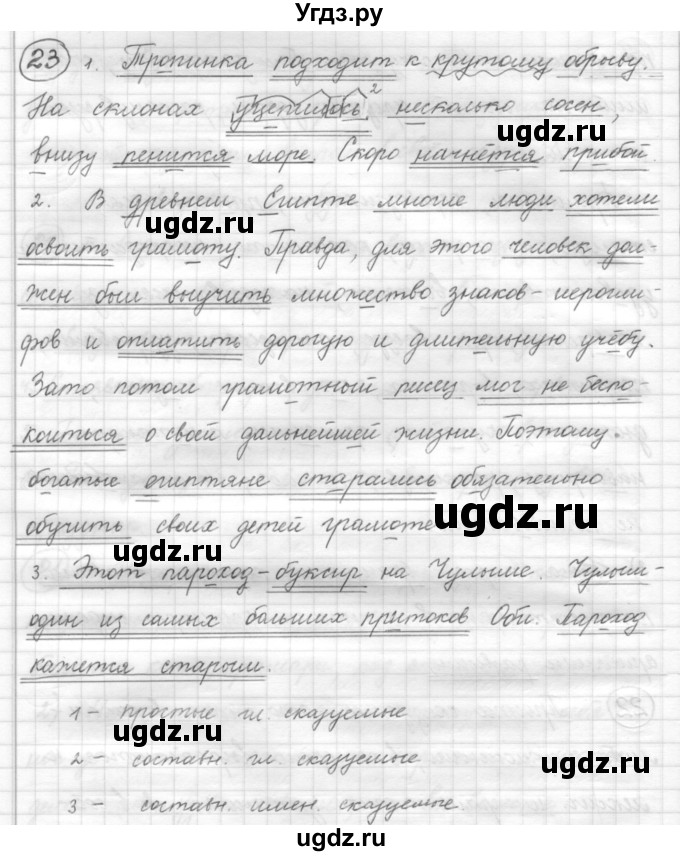 Угдз.ру
23 1. Тропинка подходит к крутому обрыву.
На склонах уцепилось 2 несколько сосен,
внизу пенится море. Скоро начнётся прибой.
ugdz.ru
2. В древнем Египте многие люди хотели
ugdz.ru
освоить грамоту. Правда, для этого человек дол-
жен был выучить множество знаков-иерогли-
фов и оплатить дорогую и длительную учёбу.
Зато потом грамотный писец мог не беспо-
коиться о своей дальнейшей жизни. Поэтому
богатые египтяне старались обязательно
обучить своих детей грамоте
ugdz.ru
ugdz.ru
3. Этот пароход-буксир на Чулыме. Чулым-
один из самых больших притоков Оби. Пароход
кажется старым.
1 - простые гл. сказуемые
ugdz.ru
2 - составн. гл. сказуемые
ugdz.ru
3 - составн. имен. сказуемые.
ugdz.ru